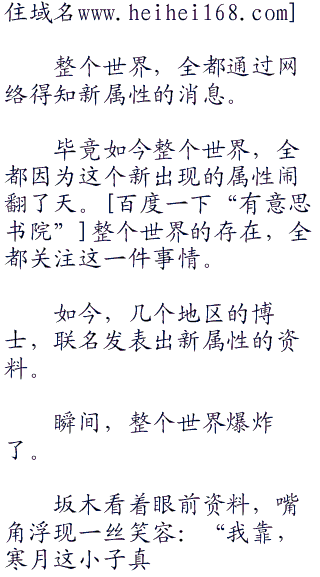 住域名www.heihei168.com]
整个世界，全都通过网
络得知新属性的消息。
毕竟如今整个世界，全
都因为这个新出现的属性闹
翻了天。[百度一下“有意思
书院”]整个世界的存在，全
都关注这一件事情。
如今，几个地区的博
士，联名发表出新属性的资
料。
瞬间，整个世界爆炸
了。
坂木看着眼前资料，嘴
角浮现一丝笑容：“我靠，
寒月这小子真